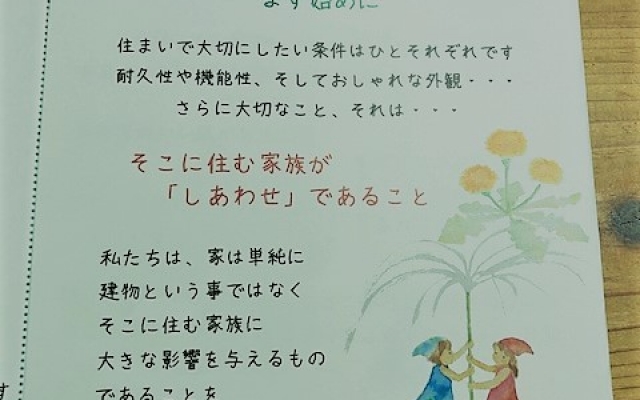 まず始めに
住まいで大切にしたい条件はひとそれぞれです
耐久性や機能性、そしておしゃれな外観・・・
さらに大切なこと、それは・・・
そこに住む家族が
「しあわせ」であること
私たちは、家は単純に
建物という事ではなく
そこに住む家族に
大きな影響を与えるもの
であることを
す